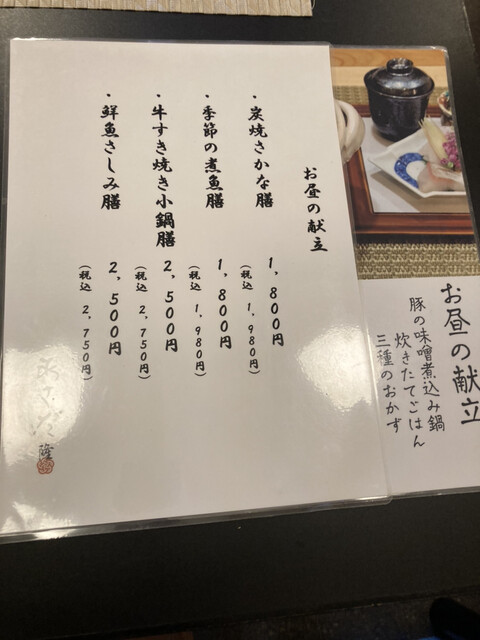 お昼の献立
・炭焼さかな膳
1,800円
(税込 1,980円)
・季節の煮魚膳
1,800円
(税込 1,980円)
・牛すき焼き小鍋膳
2,500円
(税込 2,750円)
・鮮魚さしみ膳
2,500円
(税込 2,750円)
隆
お昼の献立
豚の味噌煮込み鍋
炊きたてごはん
三種のおかず